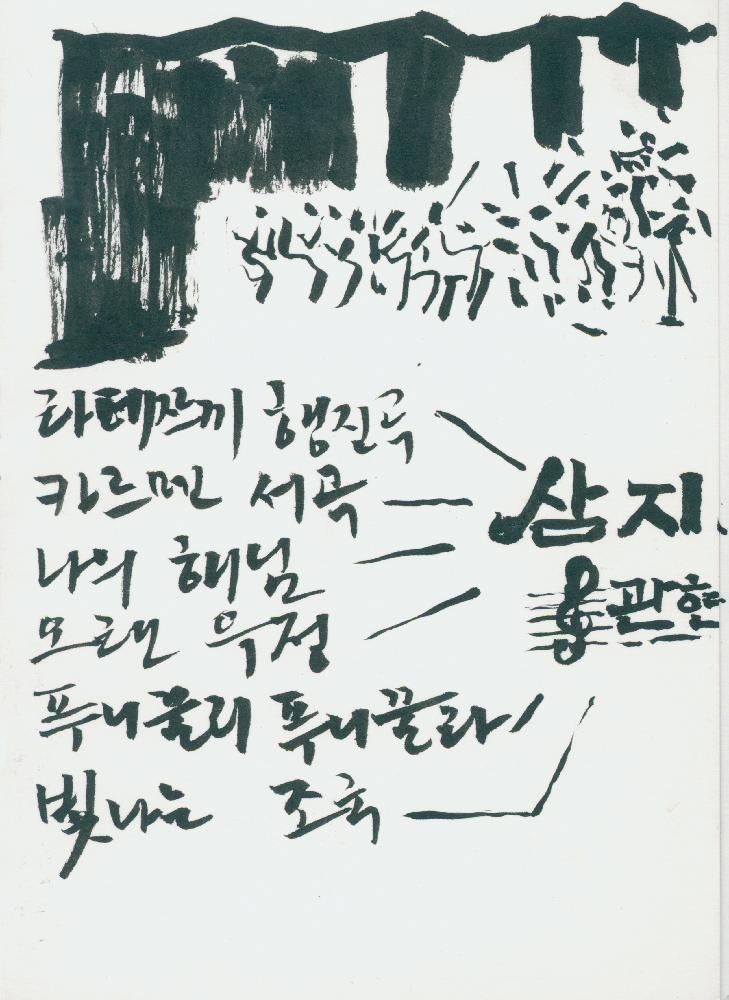 라테츠키 행진곡
카르멘 서곡
나의 해님
오랜 우정
푸니꿀리 푸니꿀라
빛나는 조국
삼지
관현